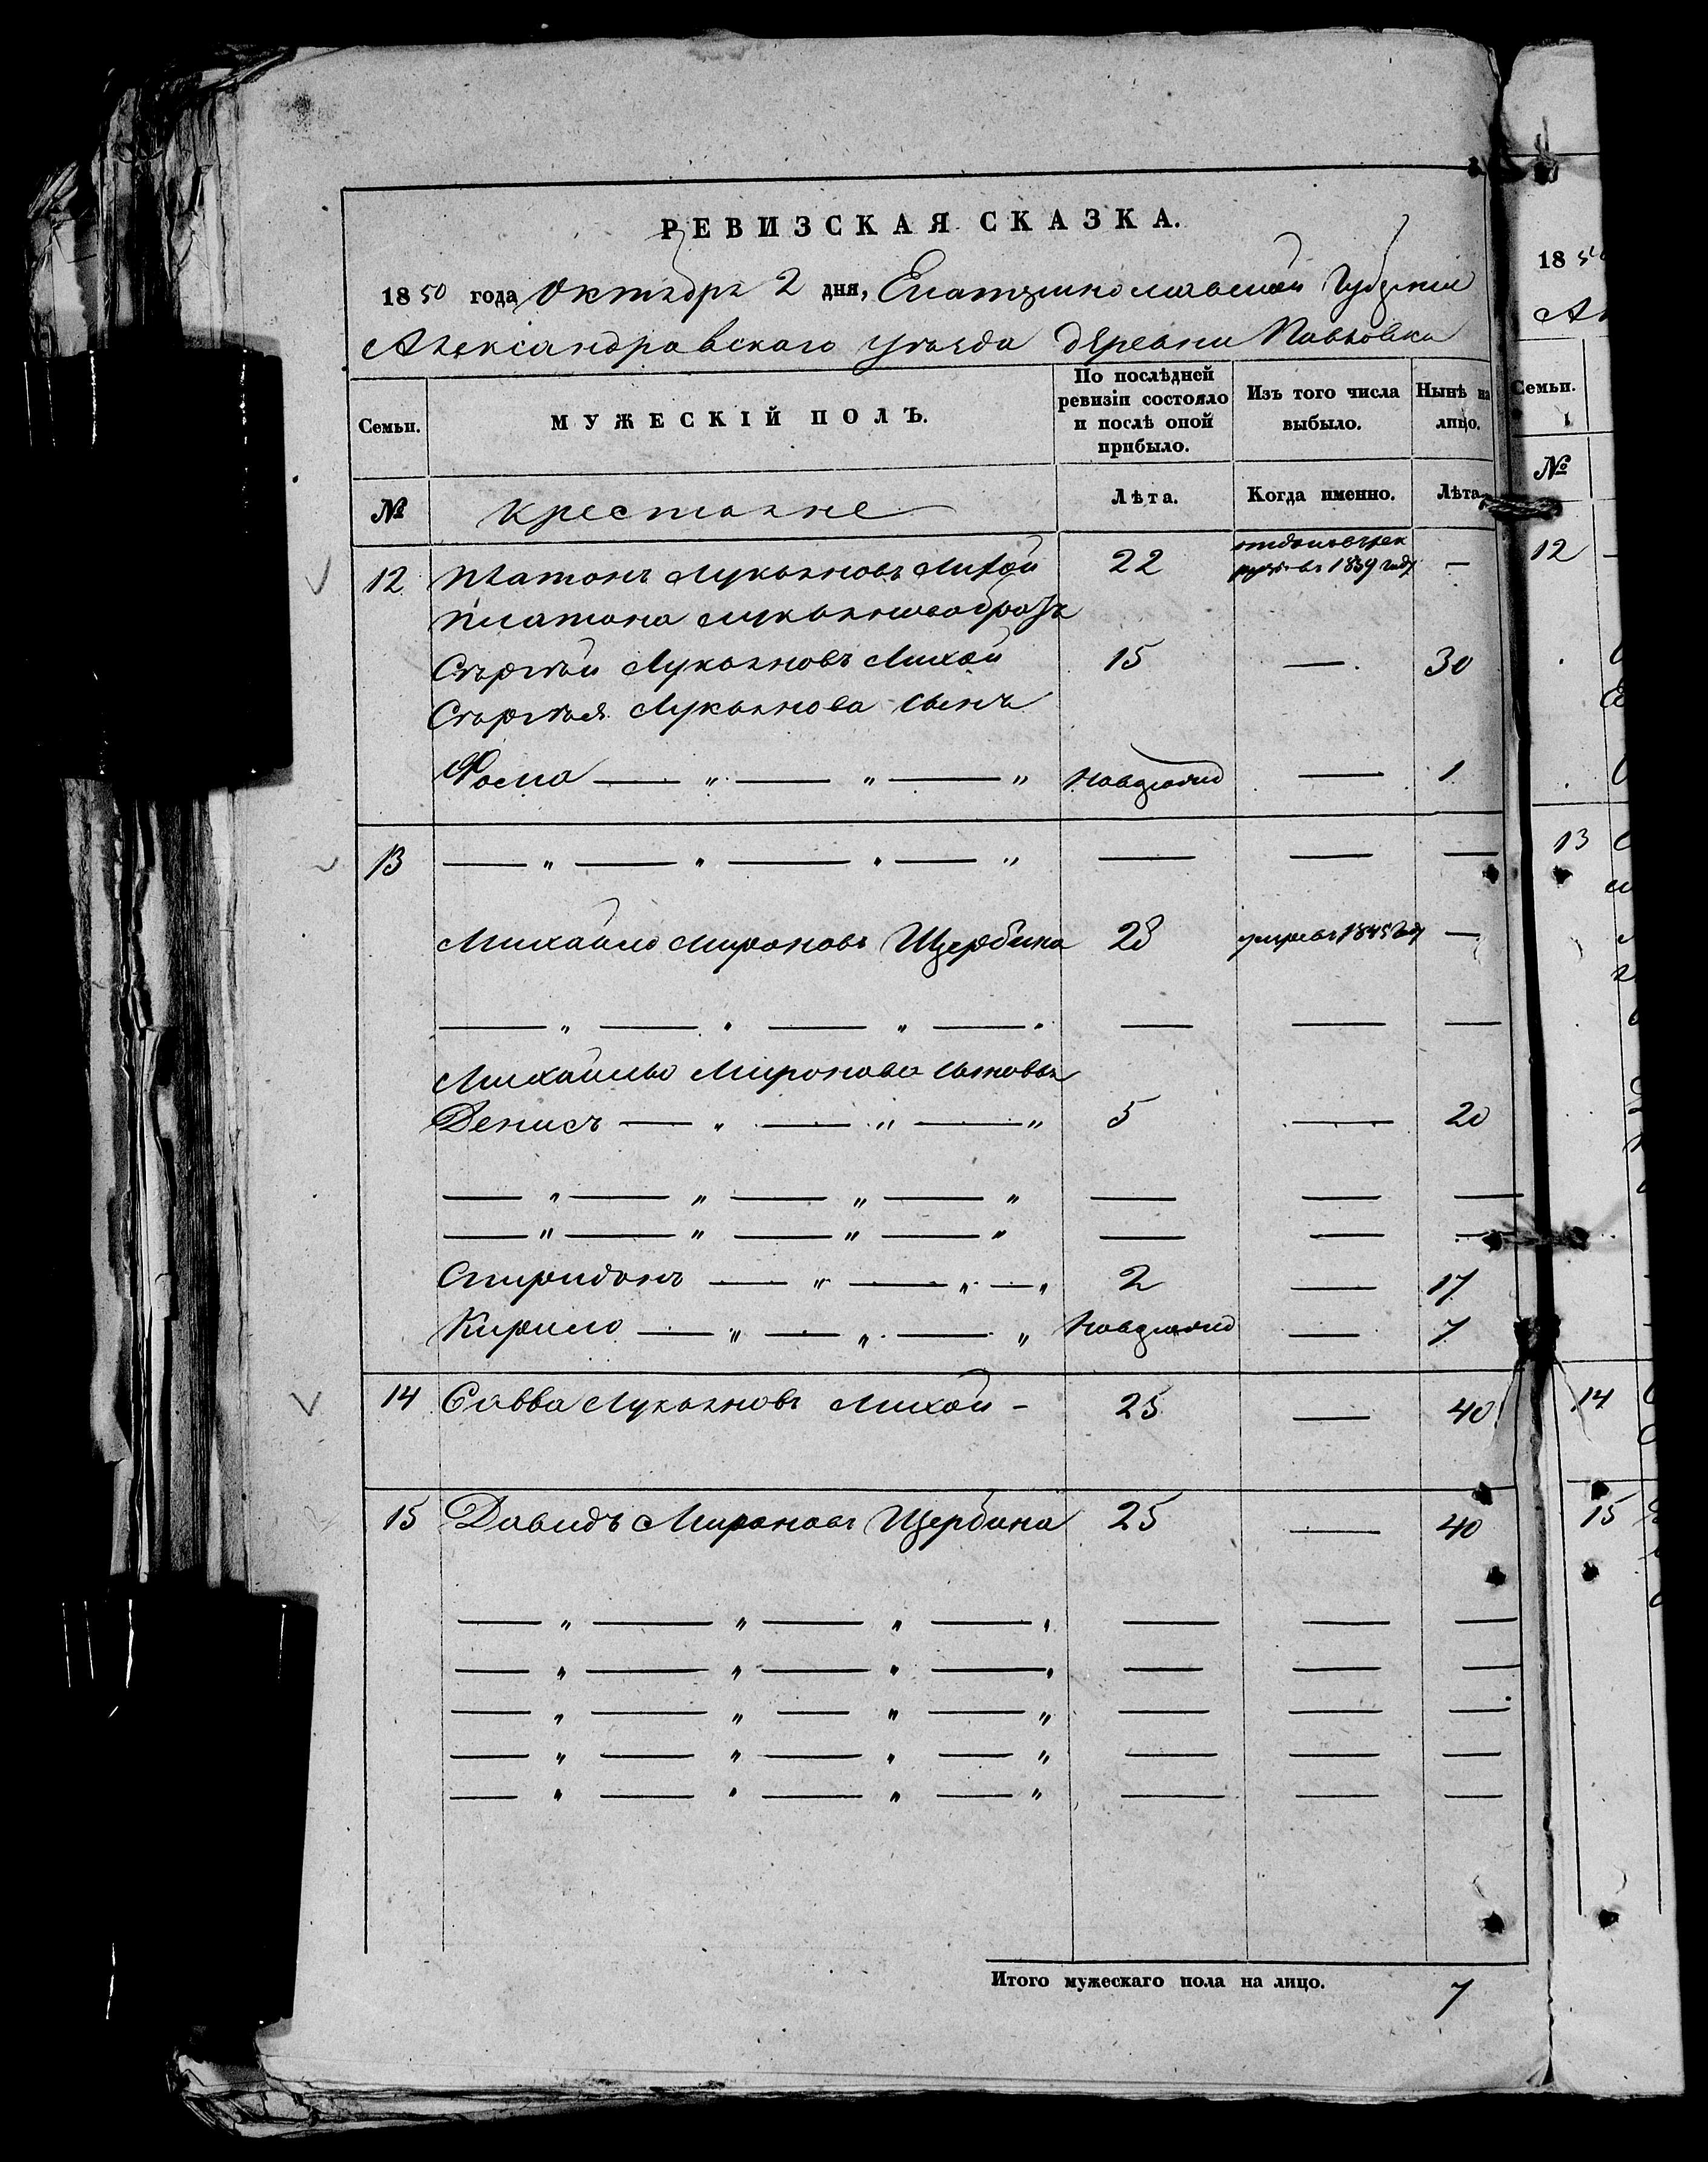 РЕВИЗСКАЯ СКАЗКА.
1850 года Октября 2 дня, Екатеринославской Губернии
Александровскаго уѣзда деревни Павловки
Семьи.
МУЖЕСКІЙ ПОЛЪ.
По послѣдней ревизіи состояло и послѣ оной прибыло.
Изъ того числа выбыло.
Нынѣ на лицо.
№
крестьяне
Лѣта.
Когда именно.
Лѣта
12 Платонъ Лукьяновъ Лихой 22 отданъ въ рекруты въ 1839 году —
Платона Лукьянова братъ
Сергѣй Лукьяновъ Лихой 15 — 30
Сергѣя Лукьянова сынъ
Фома — „ — „ — „ новорожд — 1
13 — „ — „ — „ — „ — — —
Михайло Мироновъ Щербина 28 умре въ 1845 году —
— „ — „ — „ — „ — — —
Михайлы Миронова сыновья
Денисъ — „ — „ — „ 5 — 20
— „ — „ — „ — „ — — —
— „ — „ — „ — „ — — —
Спиридонъ — „ — „ — „ 2 — 17
Кирило — „ — „ — „ новорожд — 7
14 Савва Лукьяновъ Лихой - 25 — 40
15 Давидъ Мироновъ Щербина 25 — 40
— „ — „ — „ — „ — — —
— „ — „ — „ — „ — — —
— „ — „ — „ — „ — — —
— „ — „ — „ — „ — — —
— „ — „ — „ — „ — — —
Итого мужескаго пола на лицо. 7
18 50
Семьи.
№
12
13
14
15